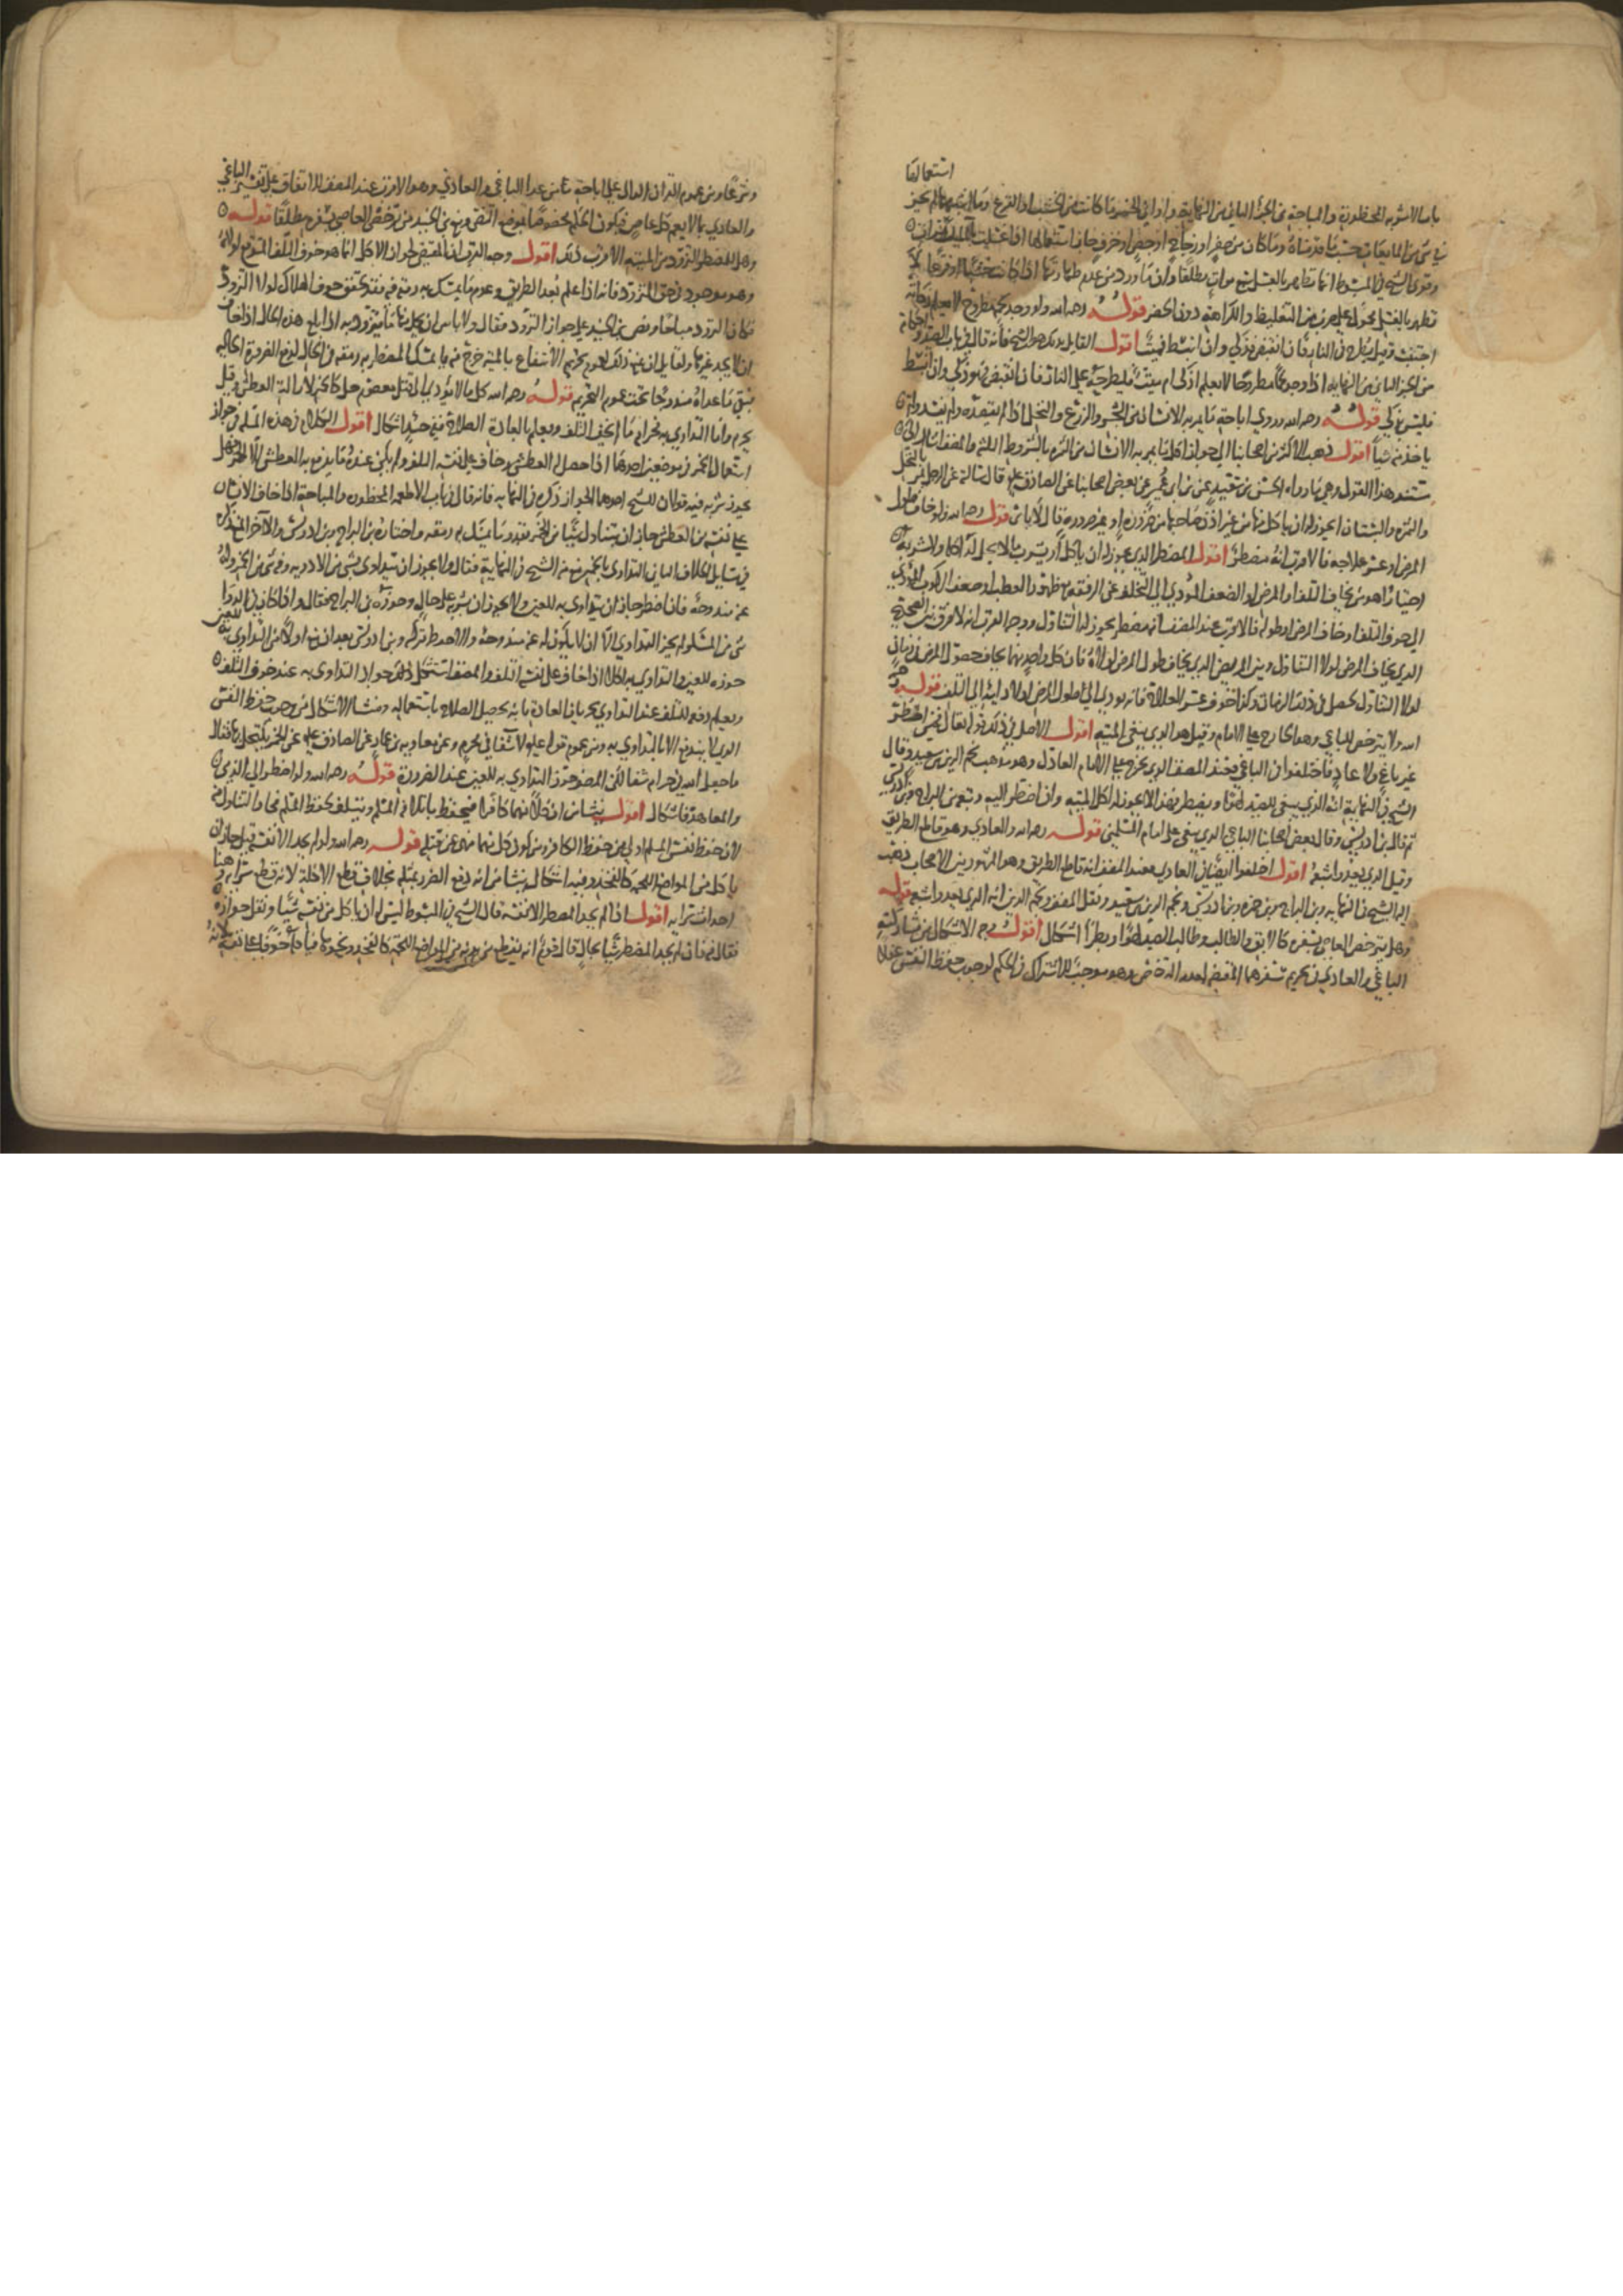 استعمالها
باب الاشربه المحظورة والمباحة من الجزء الثاني من النهاية واواني الخمر ما كانت من الخشب او القرع وما اشبههما لم يجز
شي من المايعات حسب ما قدمناه وما كان من صفر او زجاج او جص او خزف جاز استعمالها اذا غسلت
وقوى الشيخ في المبسوط انها تطهر بالغسل سبع مرات مطلقا وان ما ورد من عدم طهارتها
تطهر بالغسل محمول على ضرب من التغليظ والكراهة دون الحضر قوله رحمه الله ولو وجد لحم مطروح لا يعلم ذكاته
اجتنب وقيل يطرح في النار فان انقبض فذكي وان انبسط فميت اقول القايل بذلك هو الشيخ فانه قال في باب الصيد
من الجزء الثاني من النهاية اذا وجد لحما مطروحا لا يعلم اذكي ام ميت فليطرحه على النار فان انقبض فهو ذكي وان انبسط
فليس بذكي قوله رحمه الله وروي اباحة ما يمر به الانسان من الشجر والزرع والنخل اذا لم يقصده ولم يفسد ولم
ياخذ منه شيا اقول ذهب الاكثر من اصحابنا الى جواز اكل ما يمر به الانسان من الثمره بالشروط الثلثه والمصنف اشار الى
مستند هذا القول وهي ما رواه الحسن بن سعيد عن بن ابي عمير عن بعض اصحابنا عن الصادق ع قال سالته عن الرجل يمر بالنخل
والثمره والبستان ايجوز له ان ياكل منها من غير اذن صاحبها من ضرورة او غير ضرورة قال لا باس قوله رحمه الله ولو خاف طول
المرض او عسر علاجه فالاقرب انه مضطر اقول المضطر الذي يجوز له ان ياكل او يشرب مالا يحل له اكله ولا شربه
اختيارا هو من يخاف التلف او المرض او الضعف المودي الى التخلف عن الرفقة مع ظهور العطب او ضعف الركوب المودي
الى خوف التلف ولو خاف المرض او طوله فالاقرب عند المصنف انه مضطر يجوز له التناول ووجه القرب انه لا فرق بين الصحيح
الذي يخاف المرض لولا التناول وبين المريض الذي يخاف طول المرض لولاه فان كل واحد منهما يخاف حصول المرض في زمان
لولا التناول لحصل في ذلك الزمان وكذا خوف عسر العلاج فانه يودي الى طول المرض اولا وايه الى التلف قوله رحمه
الله ولا يترخص للباغي وهو الخارج على الامام وقيل هو الذي يبغي الميته اقول الاصل في ذلك قوله تعالى فمن اضطر
غير باغ ولا عاد فاختلفوا في الباغي فعند المصنف الذي يخرج على الامام العادل وهو مذهب نجم الدين بن سعيد وقال
الشيخ في النهاية انه الذي يبغي للصيد لهوا وبطرا فهذا لا يجوز له اكل الميته وان اضطر اليه وتبعه بن البراج وبن ادريس
ثم قال بن ادريس وقال بعض اصحابنا الباغي الذي يبغي على امام المسلمين قوله رحمه الله والعادي وهو قاطع الطريق
وقيل الذي يعدو لشبعه اقول اختلفوا ايضا في العادي فعند المصنف انه قاطع الطريق وهو المشهور بين الاصحاب ذهب
اليه الشيخ في النهاية وبن البراج وبن حمزه وبن ادريس ونجم الدين بن سعيد ونقل المصنف ونجم الدين انه الذي يعدو لشبعه قوله
وهل يترخص العاصي بسفره كالابق والطالب وطالب الصيد لهوا وبطرا اشكال اقول وجه الاشكال من مشاركته
الباغي والعادي في تحريم سفرهما المقتضي لعدم الترخص وهو موجب للاشتراك في الحكم لوجوب حفظ النفس عقلا
وشرعا ومن عموم القران الدال على اباحة ما من عدا الباغي والعادي وهو الاقرب عند المصنف للاتفاق على تفسير الباغي
والعادي بما لا يعم كل عاص فيكون الحكم مخصوصا بموضع النص ومنع بن الجنيد من ترخص العاصي بسفره مطلقا قوله
وهل للمضطر التزود من الميته الاقرب ذلك اقول وجه القرب ان المقتضي لجواز الاكل انما هو خوف التلف المتوقع لولاه
وهو موجود في حق التزود فانه اذا علم بعد الطريق وعدم ما يمسك به رمقه فيه فقد تحقق خوف الهلاك لولا التزود
فكان التزود مباحا ونص بن الجنيد على جواز التزود فقال ولا باس ان يحمل منها ما يتزود به اذا بلغ هذه الحال اذا خاف
ان لا يجد غيرها ولقايل ان يمنع ذلك لعموم تحريم الانتفاع بالميته خرج منه ما يمسك المضطر به رمقه في الحال لدفع الضرورة الحاليه
فيبقى ما عداه مندرجا تحت عموم التحريم قوله رحمه الله كل ما لا يودي الى قتل معصوم حل كالخمر لازالة العطش وقيل
يحرم واما التداوي به فحرام ما لم يخف التلف ويعلم بالعادة الصلاح ففيه حينئذ اشكال اقول الكلام في هذه المسلة في جواز
استعمال الخمر في موضعين احدهما اذا حصل له العطش وخاف على نفسه التلف ولم يكن عنده ما يدفع به العطش الا الخمر فهل
يجوز شربه فيه قولان للشيخ احدهما الجواز ذكره في النهايه فانه قال في باب الاطعمه المحظوره والمباحة اذا خاف الانسان
على نفسه من العطش جاز ان يتناول شيا من الخمر بقدر ما يمسك به رمقه واختاره بن البراج وبن ادريس والآخر المنع ذكره
في مسايل الخلاف الثاني التداوي بالخمر منع منه الشيخ في النهاية فقال ولا يجوز ان يتداوى بشي من الادويه وفيه شي من الخمر وله
عنه مندوحه فان اضطر جاز ان يتداوى به للعين ولا يجوز ان يشربه على حال وجوزه بن البراج فقال واذا كان في الدوا
شي من المسكر لم يجز التداوي الا ان لا يكون له عنه مندوحه والاحوط تركه وبن ادريس بعد ان منع اولا من التداوي به للعين
جوزه للعين والتداوي به للاكل اذا خاف على نفسه التلف والمصنف استشكل ذلك جواز التداوي به عند خوف التلف
ويعلم دفعه للتلف عند التداوي بمجرى العادة بانه يحصل الصلاح باستعماله ومنشا الاشكال من وجوب حفظ النفس
الذي لا يندفع الا بالتداوي به ومن عموم قوله عليه السلام لا شفا في محرم وعن معاويه بن عمار عن الصادق ع عن الخمر يكتحل بها فقال
ما جعل الله في حرام شفا لكن المصنف جوز التداوي به للعين عند الضرورة قوله رحمه الله ولو اضطر الى الذمي
والمعاهد فاشكال اقول ينشا من ان كلا منهما كافر فيحفظ باتلافه المسلم ويتلف لحفظ المسلم فجاز التناول منه
لان حفظ نفس المسلم اولى من حفظ الكافر ومن كون كل منهما نهي عن قتله قوله رحمه الله ولو لم يجد الا نفسه قيل جاز ان
ياكل من المواضع اللحمه كالفخذ وفيه اشكال ينشا من انه دفع الضرر بمثله بخلاف قطع الاكلة لانه قطع سراية وهنا
احداث سراية اقول اذا لم يجد المضطر الا نفسه قال الشيخ في المبسوط ليس له ان ياكل من نفسه شيا ونقل جوازه
فقال فيه فان لم يجد المضطر شيا بحال قال قوم انه يقطع من بدنه من المواضع اللحمه كالفخذ ونحوها فياكله خوفا على نفسه لانه